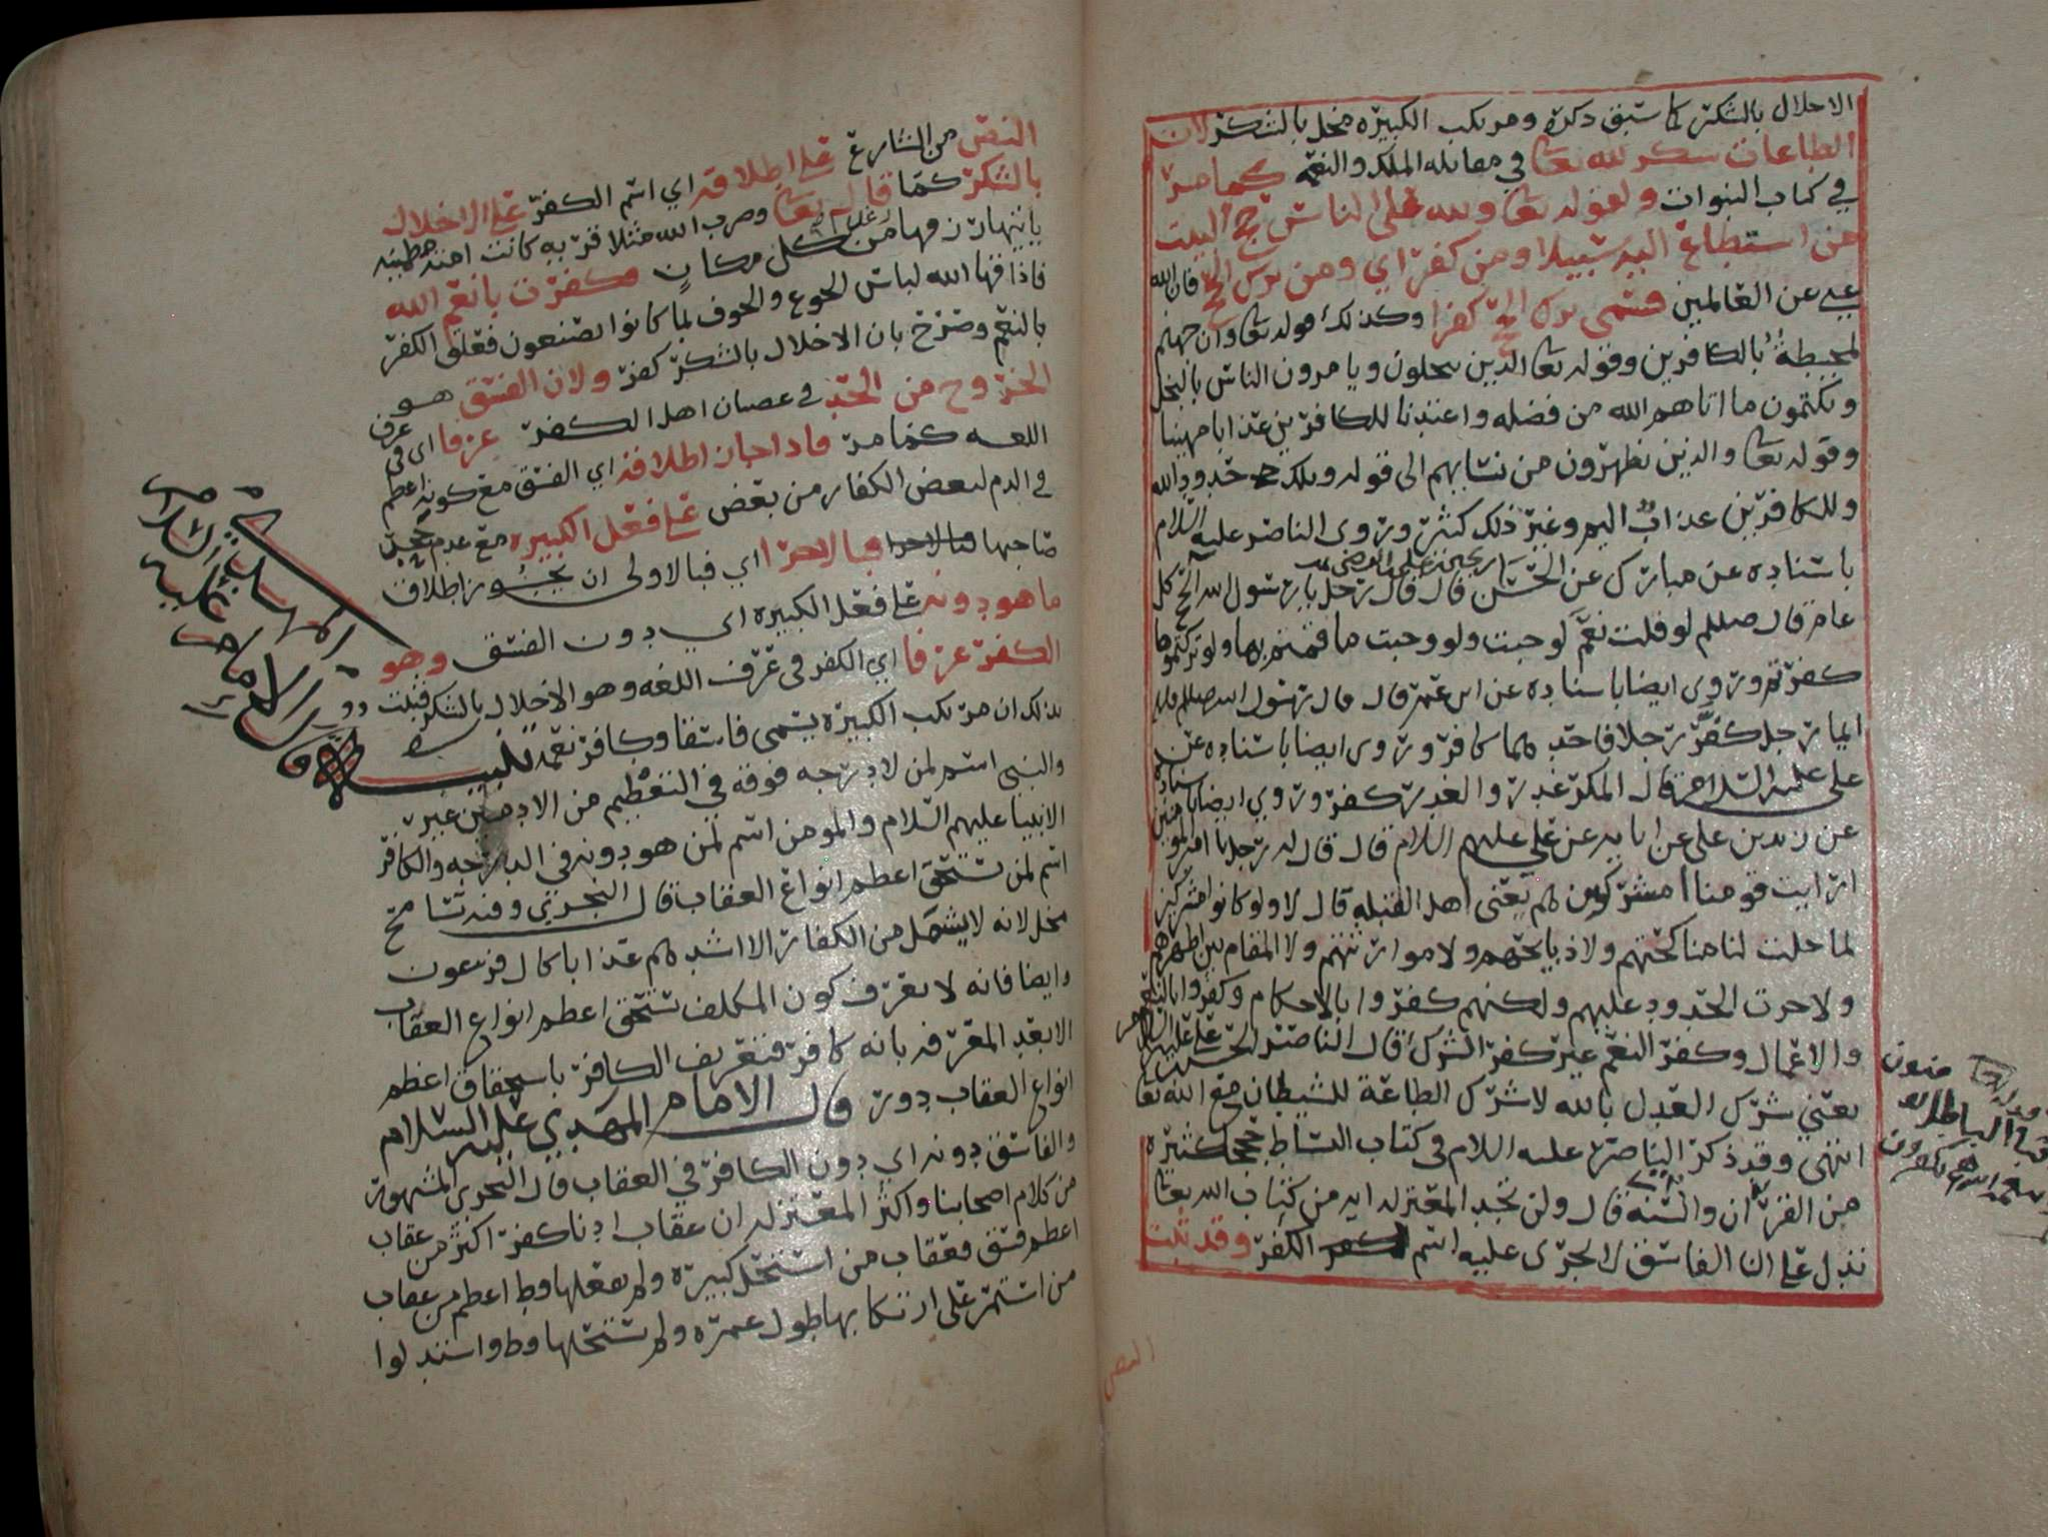 الاخلال بالشكر كما سبق ذكره ومرتكب الكبيره مخل بالشكر لان
الطاعات شكر لله تعا في مقابله الملك والنعم كما مر
في كتاب النبوات ولقوله تعا ولله على الناس حج البيت
من استطاع اليه سبيلا ومن كفر اي ومن ترك الحج فان الله
غني عن العالمين فسمى ترك الحج كفرا وكذلك قوله تعا وان جهنم
لمحيطة بالكافرين وقوله تعا الذين يبخلون ويامرون الناس بالبخل
ويكتمون ما اتاهم الله من فضله واعتدنا للكافرين عذابا مهينا
وقوله تعا والذين يظهرون من نسايهم الى قوله وتلك حدود الله
وللكافرين عذاب اليم وغير ذلك كثير وروى الناصر عليه السلام
باسناده عن مبارك عن الحسن قال قال رجل يا رسول الله الحج كل
عام قال صللم لو قلت نعم لوجبت ولو وجبت ما قمتم بها ولو تركتموها
كفرتم وروى ايضا باسناده عن ابن عمر قال قال رسول الله صللم
ايما رجل كفر رجلا فاحدهما كافر وروى ايضا باسناده عن
علي عليه السلام قال المكر غدر والغدر كفر وروي ايضا باسناده
عن زيد بن علي عن ابايه عن علي عليهم السلام قال قال له رجل يا امير المومنين
ارايت قومنا امشركون هم يعني اهل القبله قال لا ولو كانوا مشركين
لما حلت لنا مناكحتهم ولا ذبايحهم ولا موارثتهم ولا المقام بين اظهرهم
ولا جرت الحدود عليهم ولكنهم كفروا بالاحكام وكفروا بالنعم
والاعمال وكفر النعم غير كفر الشرك قال الناصر الحسن بن علي عليهم السلام
يعني شرك العدل بالله لا شرك الطاعة للشيطان مع الله تعا
انتهى وقد ذكر الناصر عليه السلام في كتاب البساط حججا كثيره
من القران والسنه قال ولن تجد المعتزله ايه من كتاب الله تعا
تدل على ان الفاسق لا يجرى عليه اسم الكفر وقد ثبت
افبالباطل
النص
النص من الشارع على اطلاقه اي اسم الكفر على الاخلال
بالشكر كما قال تعا وضرب الله مثلا قريه كانت امنه مطمينه
ياتيها رزقها رغدا من كل مكان فكفرت بانعم الله
فاذاقها الله لباس الجوع والخوف بما كانوا يصنعون فعلق الكفر
بالنعم وصرح بان الاخلال بالشكر كفر ولان الفسق هو
الخروج من الحد في عصيان اهل الكفر عرفا اي في عرف
اللغه كما مر فاذا جاز اطلاقه اي الفسق مع كونه اعظم
في الذم لبعض الكفار من بعض على فعل الكبيره مع عدم
صاحبها فبالاحرا اي فبالاولى ان يجوز اطلاق
ما هو دونه على فعل الكبيره اي دون الفسق وهو
الكفر عرفا اي الكفر في عرف اللغه وهو الاخلال بالشكر فثبت
بذلك ان مرتكب الكبيره يسمى فاسقا وكافر نعمه تنبيه
قال الامام المهدي عليه السلام
والنبي اسم لمن لا درجه فوقه في التعظيم من الادميين غير
الانبيا عليهم السلام والمومن اسم لمن هو دونه في الدرجه والكافر
اسم لمن يستحق اعظم انواع العقاب قال النجري وفيه تسامح
مخل لانه لا يشمل من الكفار الا اشدهم عذابا كال فرعون
وايضا فانه لا يعرف كون المكلف يستحق اعظم انواع العقاب
الا بعد المعرفه بانه كافر فتعريف الكافر باستحقاق اعظم
انواع العقاب دور قال الامام المهدي عليه السلام
والفاسق دونه اي دون الكافر في العقاب قال النجري المشهور
من كلام اصحابنا واكثر المعتزله ان عقاب ادنا كفر اكثر من عقاب
اعظم فسق فعقاب من استحل كبيره ولم يفعلها قط اعظم من عقاب
من استمر على ارتكابها طول عمره ولم يستحلها قط واستدلوا